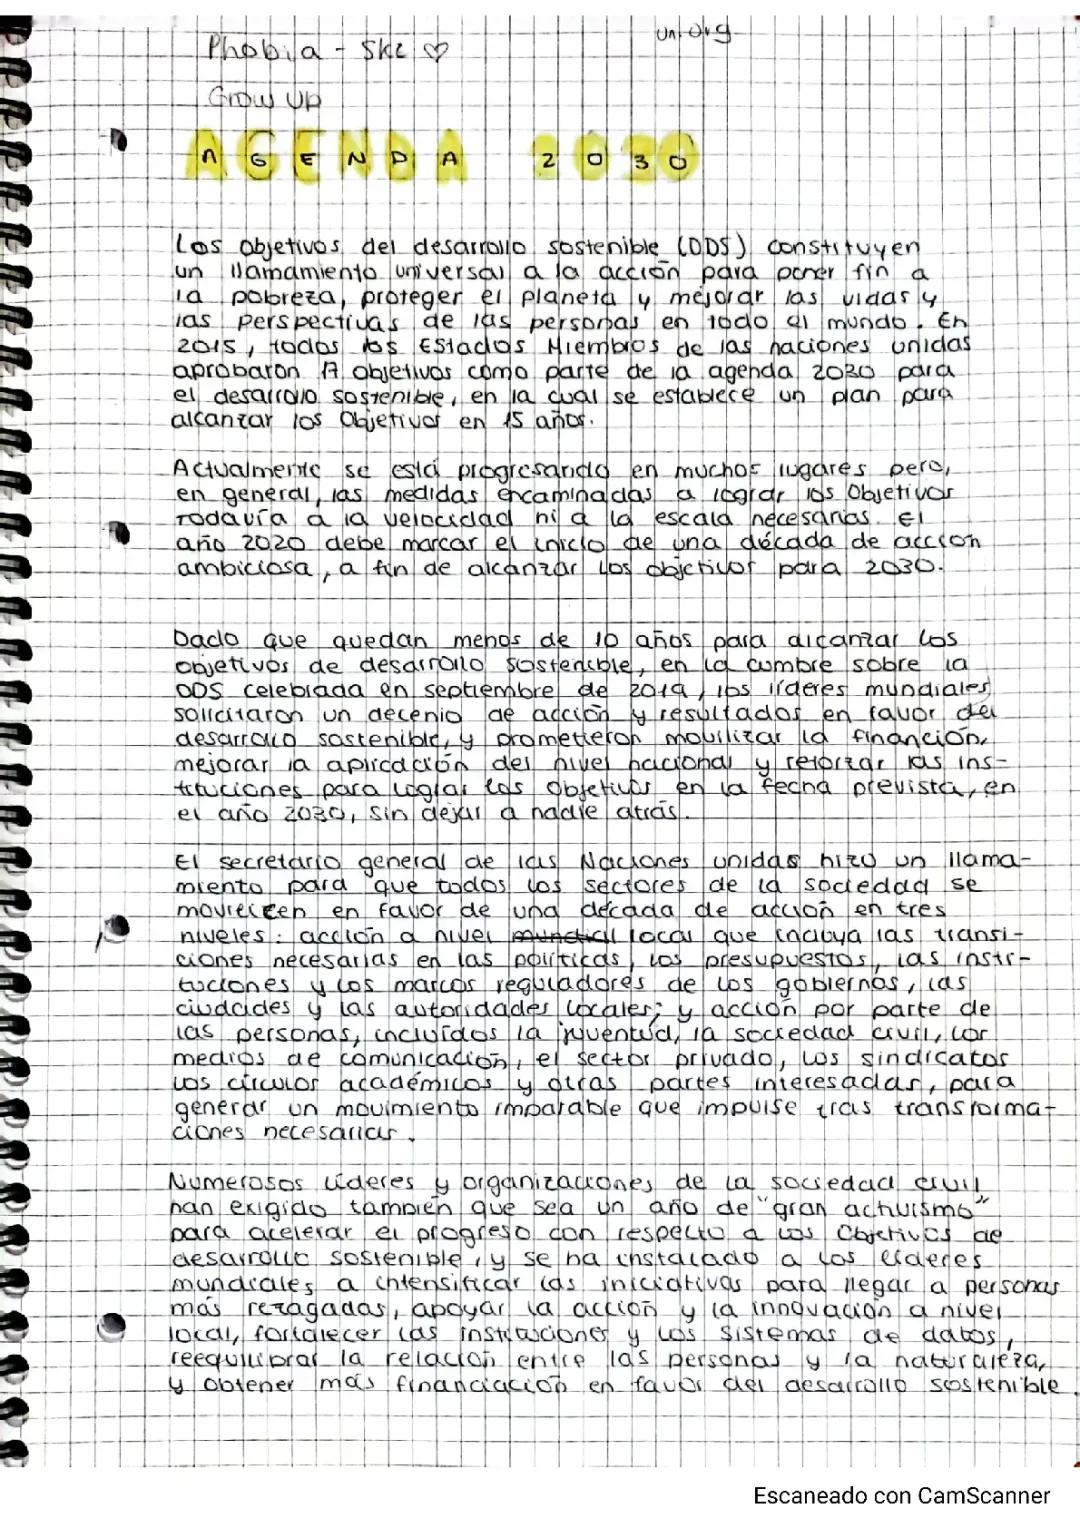 Phobia - Skz ♡
un.org
Grow up
AGENDA 2030
Los objetivos del desarrollo sostenible (ODS) constituyen
un llamamiento universal a la acción para poner fin a
la pobreza, proteger el planeta y mejorar las vidas y
las perspectivas de las personas en todo el mundo. En
2015, todos los Estados Miembros de las naciones unidas
aprobaron 17 objetivos como parte de la agenda 2030 para
el desarrollo sostenible, en la cual se establece un plan para
alcanzar los Objetivos en 15 años.
Actualmente se está progresando en muchos lugares pero,
en general, las medidas encaminadas a lograr los Objetivos
Todavía a la velocidad ni a la escala necesarias. El
año 2020 debe marcar el inicio de una década de acción
ambiciosa, a fin de alcanzar los objetivos para 2030.
Dado que quedan menos de 10 años para alcanzar los
objetivos de desarrollo sostenible, en la cumbre sobre la
ODS celebrada en septiembre de 2019, los líderes mundiales
solicitaron un decenio de acción y resultados en favor del
desarrollo sostenible, y prometieron movilizar la financión,
mejorar la aplicación del nivel nacional y reforzar las ins-
tituciones para lograr los Objetivos en la fecha prevista, en
el año 2030, sin dejar a nadie atrás.
El secretario general de las Naciones unidas hizo un llama-
miento para que todos los sectores de la sociedad se
movilicen en favor de una década de acción en tres
niveles: acción a nivel mundial local que incluya las transi-
ciones necesarias en las políticas, los presupuestos, las insti-
tuciones y los marcos reguladores de los gobiernos, las
ciudades y las autoridades locales; y acción por parte de
las personas, incluidos la juventud, la sociedad civil, los
medios de comunicación, el sector privado, los sindicatos
los círculos académicos y otras partes interesadas, para
generar un movimiento imparable que impulse tras transforma-
ciones necesarias.
Numerosos líderes y organizaciones de la sociedad civil
han exigido también que sea un año de "gran activismo"
para acelerar el progreso con respecto a los Objetivos de
desarrollo sostenible, y se ha instalado a los líderes
mundiales a intensificar las iniciativas para llegar a personas
más rezagadas, apoyar la acción y la innovación a nivel
local, fortalecer las instituciones y los sistemas de datos,
reequilibrar la relación entre las personas y la naturaleza,
y obtener más financiación en favor del desarrollo sostenible.
Escaneado con CamScanner